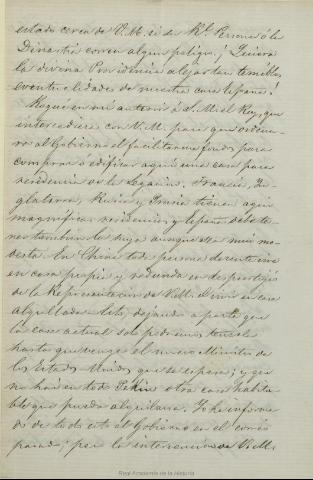 estado cerca de V. M. si su Rl. Persona ó la
Dinastía corren algun peligro. ¡Quiera
la divina Providencia alejar tan terribles
eventualidades de nuestra cara España!
Rogué en mi anterior á S. M. el Rey, que
intercediera con V. M. para que ordena-
ra al Gobierno el facilitarme fondos para
comprar ó edificar aquí una casa para
residencia de la Legacion. Francia, In-
glaterra, Rusia y Prusia tienen aquí
magníficas residencias, y España debe te-
ner tambien la suya aunque sea mas mo-
desta. En China toda persona decente vive
en casa propia y redunda en desprestigio
de la Representacion de V. M. el vivir en casa
alquilada. Esto, dejando a parte que
la casa actual solo podremos tenerla
hasta que venga el nuevo Ministro de
los Estados Unidos que se espera; y que
no hai en todo Pekin otra casa habita-
ble que pueda alquilarse. Yo he informa-
do de todo esto al Gobierno en el correo
pasado; pero la intervencion de V. M.
Real Academia de la Historia